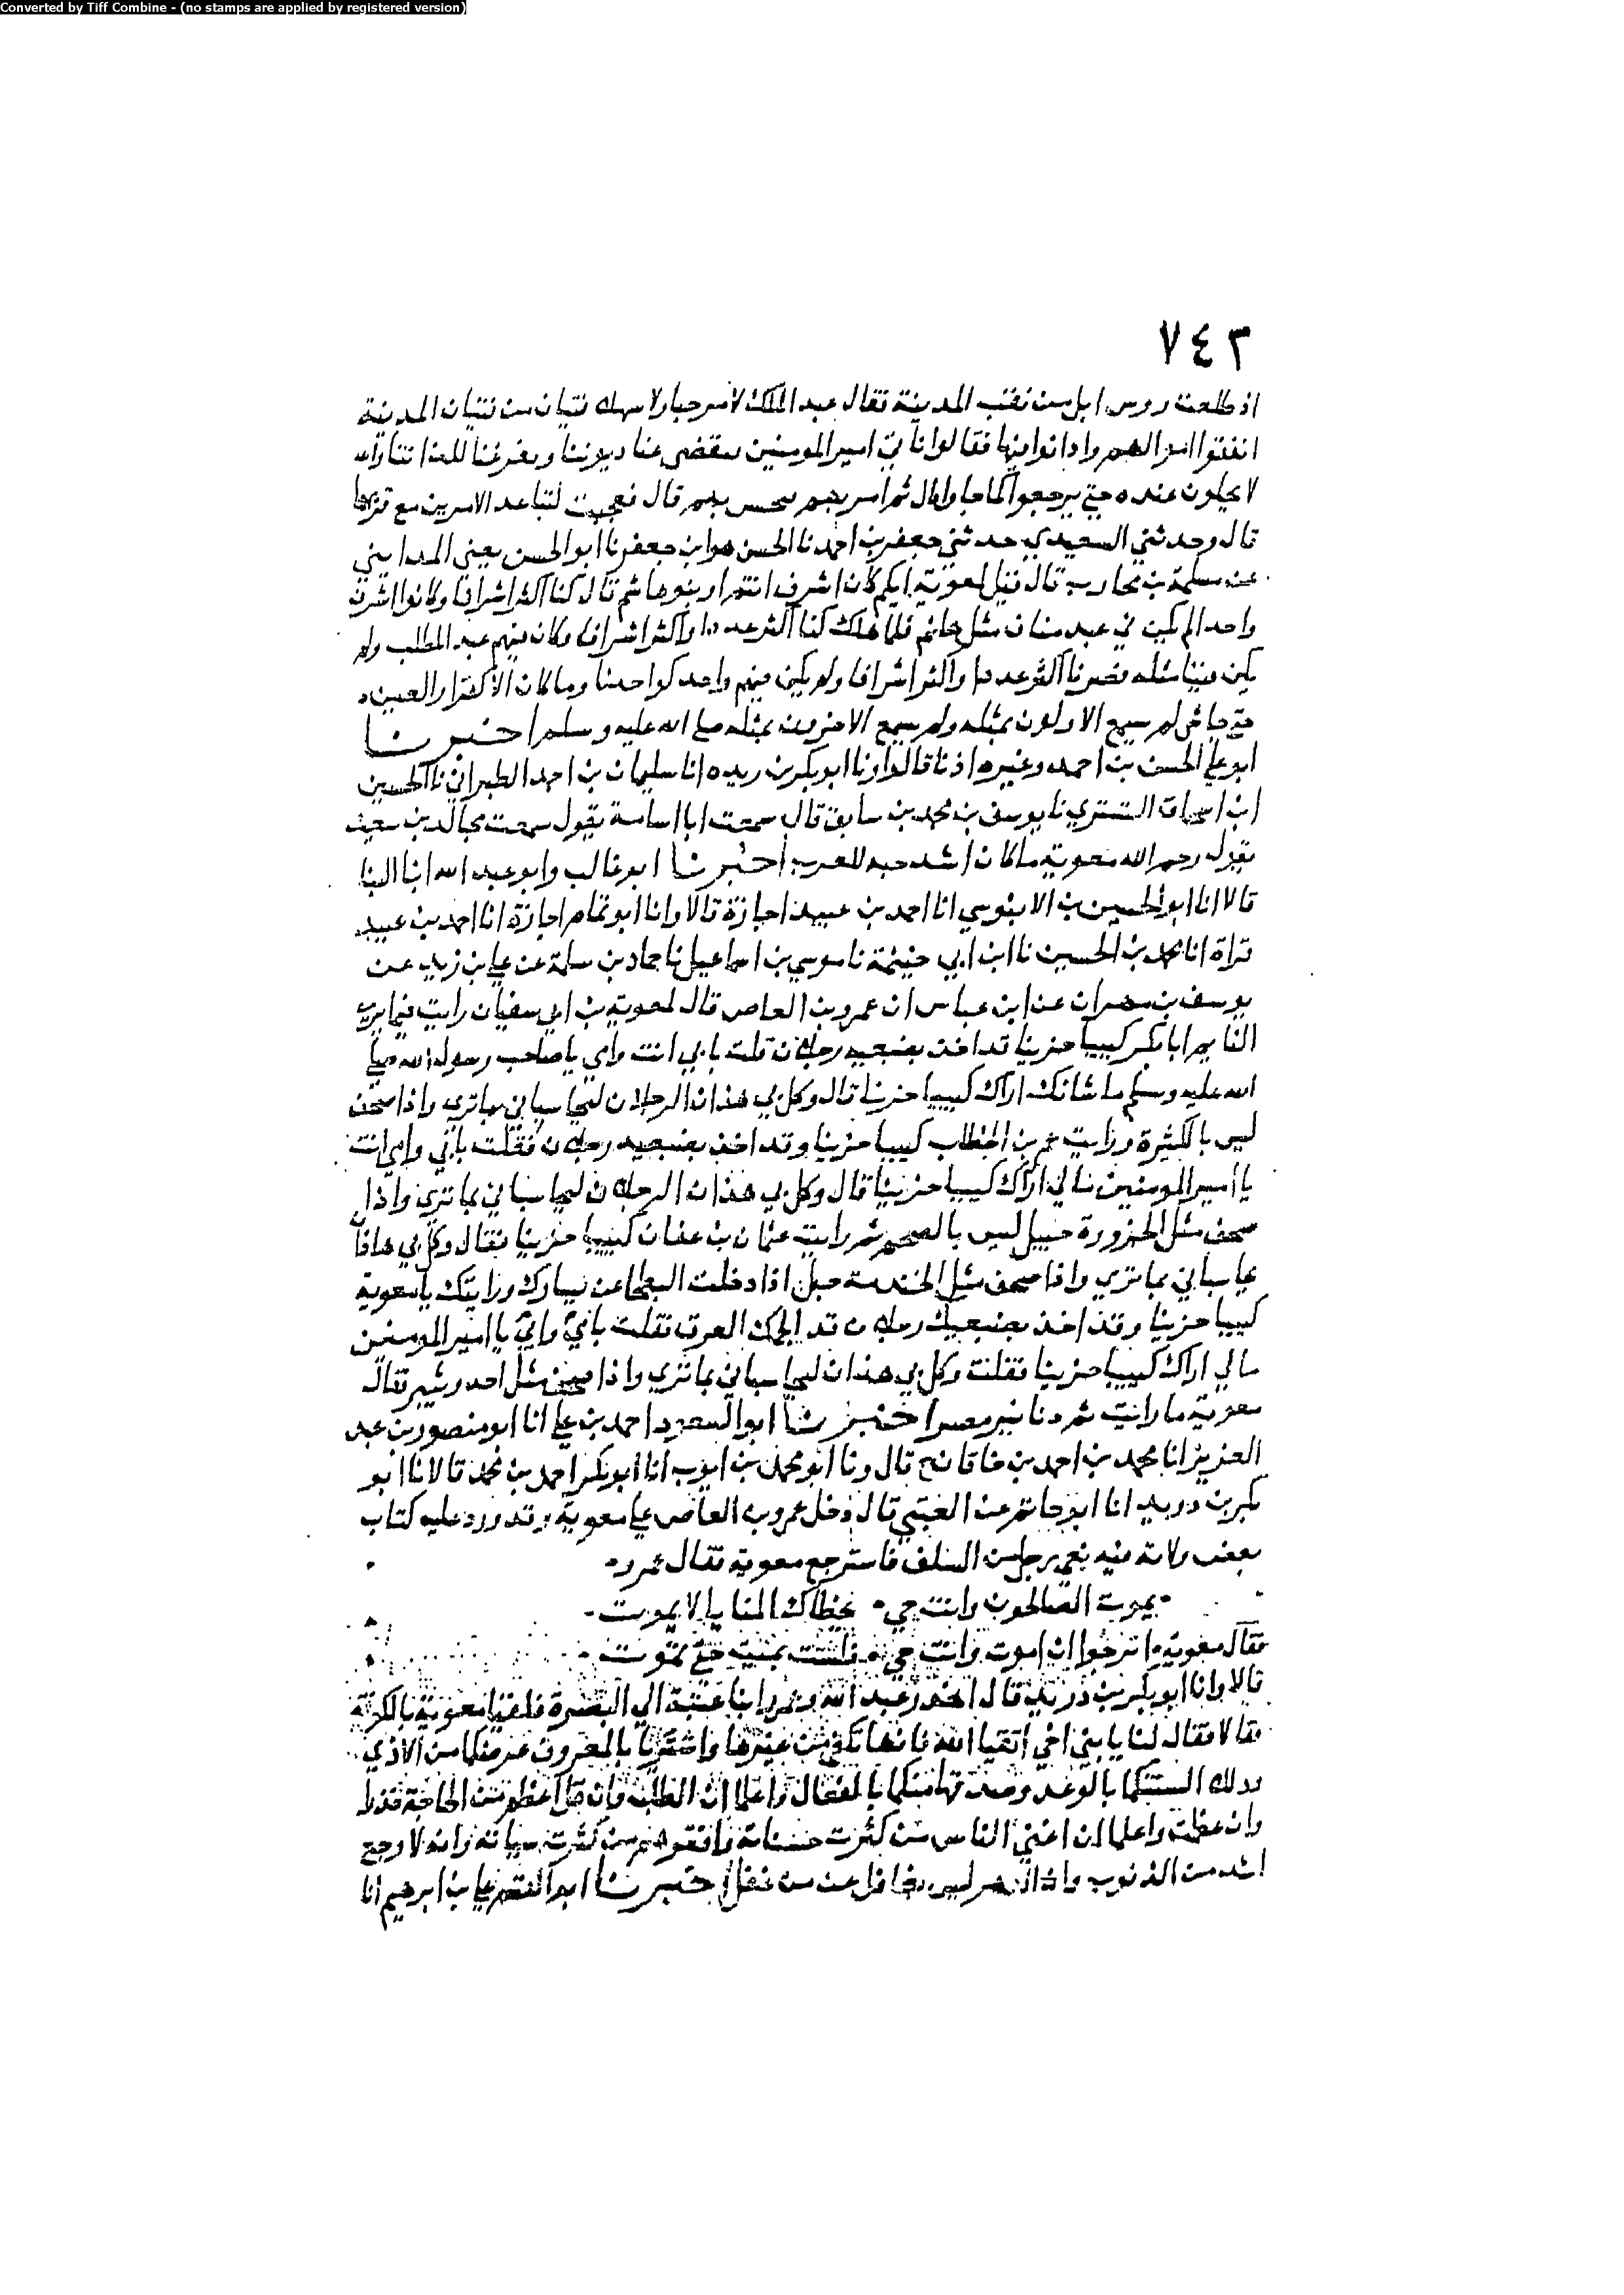 Converted by Tiff Combine - (no stamps are applied by registered version)
٧٤٣
اذ طلعت روس ابل من نقب المدينة فقال عبد الملك لا مرحبا ولا سهلا فتيان من فتيان المدينة
انفقوا اموالهم وادانوا فيها فقالوا ناتي امير المومنين فيقضي عنا ديوننا ويفرغنا
لا يحلون عنده حتي يرجعوا كما جاوا قال ثم امر بهم قال فعجبت لتباعد الامرين مع قربهما
قال وحدثني السعيدي حدثني جعفر بن احمد نا الحسن هو ابن جعفر نا ابو الحسن يعني المدايني
عن مسلمة بن محارب قال قيل لمعوية ايكم كان اشرف انتم او بنو هاشم قال كنا اكثر اشرافا وكانوا اشرف
واحدا لم يكن في عبد مناف مثل هاشم فلما هلك كنا اكثر عددا واكثر اشرافا وكان فيهم عبد المطلب ولم
يكن فينا مثله فصرنا اكثر عددا واكثر اشرافا ولم يكن فيهم واحد كواحدنا وما كان الا كقرار العين
حتي جا نبي لم يسمع الاولون بمثله ولم يسمع الاخرون بمثله صلي الله عليه وسلم اخبرنا
ابو علي الحسن بن احمد وغيره اذنا قالوا انا ابو بكر بن ريده انا سليمان بن احمد الطبراني نا الحسين
ابن اسحاق التستري نا يوسف بن محمد بن سابق قال سمعت ابا اسامة يقول سمعت مجالد بن سعيد
يقول رحم الله معوية ما كان اشد حبه للعرب اخبرنا ابو غالب وابو عبد الله ابنا البنا
قالا انا ابو الحسين بن الابنوسي انا احمد بن عبيد اجازة قالا وانا ابو تمام اجازة انا احمد بن عبيد
قراة انا محمد بن الحسين نا ابن ابي خيثمة نا موسي بن اسماعيل نا حماد بن سلمة عن علي بن زيد عن
يوسف بن مهران عن ابن عباس ان عمرو بن العاص قال لمعوية بن ابي سفيان رايت فيما يري
النايم ابا بكر كييبا حزينا قد اخذ بضبعيه رجلان قلت بابي انت وامي يا صاحب رسول الله صلي
الله عليه وسلم ما شانك اراك كييبا حزينا قال وكل بي هذان الرجلان ليحاسباني بما تري واذا صحف
ليس بالكثيرة ورايت عمر بن الخطاب كييبا حزينا وقد اخذ بضبعيه رجلان فقلت بابي وامي انت
يا امير المومنين مالي اراك كييبا حزينا قال وكل بي هذان الرجلان ليحاسباني بما تري واذا
صحف مثل الحزورة ثم رايت عثمان بن عفان كييبا حزينا فقال وكل بي هذان
يحاسباني بما تري واذا صحف مثل الخندمة جبل اذا دخلت البطحا عن يسارك ورايتك يا معوية
كييبا حزينا وقد اخذ بضبعيك رجلان قد الجمك العرق فقلت بابي وامي يا امير المومنين
مالي اراك كييبا حزينا فقلت وكل بي هذان ليحاسباني بما تري واذا صحف مثل احد وثبير فقال
معوية ما رايت ثم دنانير مصر اخبرنا ابو السعود احمد بن علي انا ابو منصور بن عبد
العزيز انا محمد بن احمد بن خاقان ح قال ونا ابو محمد بن ايوب انا ابو بكر احمد بن محمد قالا نا ابو
بكر بن دريد انا ابو حاتم عن العتبي قال دخل عمرو بن العاص علي معوية وقد ورد عليه كتاب
بعض ولاته فيه نعي رجل من السلف فاسترجع معوية فقال عمرو
يموت الصالحون وانت حي تخطاك المنايا لا يموت
فقال معوية اترجوا ان اموت وانت حي فلست بميت حتي تموت
قالا وانا ابو بكر بن دريد قال انحدر عبد الله وعمرو ابنا عتبة الي البصرة فلقيا معوية بالكوفة
فقالا فقال لنا يا بني اخي اتقيا الله فانها تكفي من غيرها واشتريا بالمعروف عرضكما من الاذي
السنتكما بالوعد وصدقها منكما بالفعال واعلما ان الطلب وان قل اعظم من الحاجة قدرا
وان عظمت واعلما ان اغني الناس من كثرت حسناته وافقرهم من كثرت سياته وانه لا وجع
اشد من الذنوب وان الدهر ليس بغافل عن من غفل اخبرنا ابو القاسم علي بن ابرهيم انا